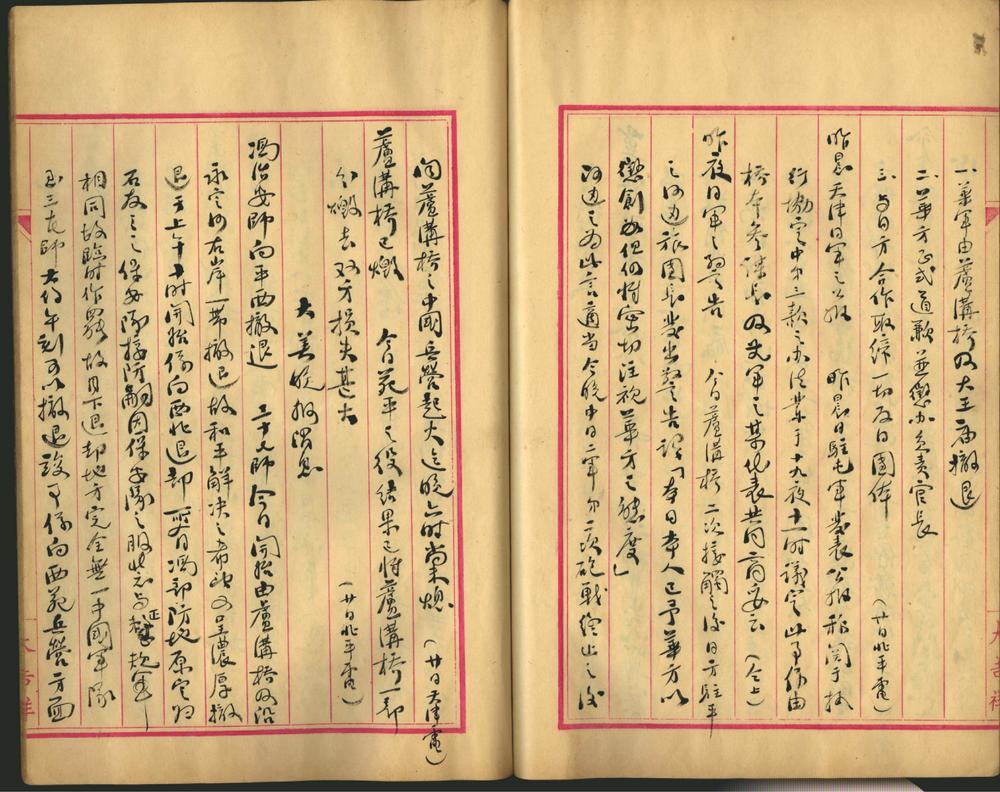 一、華軍由蘆溝橋及大王庙撤退
二、華方正式道歉並懲办負責官長
三、与日方合作取締一切反日團体　（廿日北平電）
昨晨天津日軍之公报　昨晨日駐屯軍發表公报稱関于执
行協定中第三款之办法業于十九夜十一时議定此事係由
橋本参謀長及宋軍之某代表共同商妥云（仝上）
昨夜日軍之警告　今日蘆溝橋二次接觸之後日方駐平
之河边旅團長發出警告謂「本日本人已予華方以
懲創如但仍將密切注視華方之態度」
河边之為此言適当今晚中日二軍第二次砲戰停止之後
向蘆溝橋之中國兵營起火迄晚六时尚未熄（廿日天津電）
蘆溝橋已燬　今日苑平之役結果已將蘆溝橋一部
分燬去双方損失甚大　（廿日北平電）
大美晚报消息
馮治安師向平西撤退　三十九師今日開始由蘆溝橋及沿
永定河右岸一帶撤退故和平解决之希望又呈濃厚撤
退于上午十时開始係向西北退却 馮部防地原定归
石友三之保安隊接防嗣因保安隊之服裝与正規軍
相同故臨时作罷故目下退却地方完全無一中國軍隊
至三十七師大約午刻可以撤退該事係向西苑兵營方面